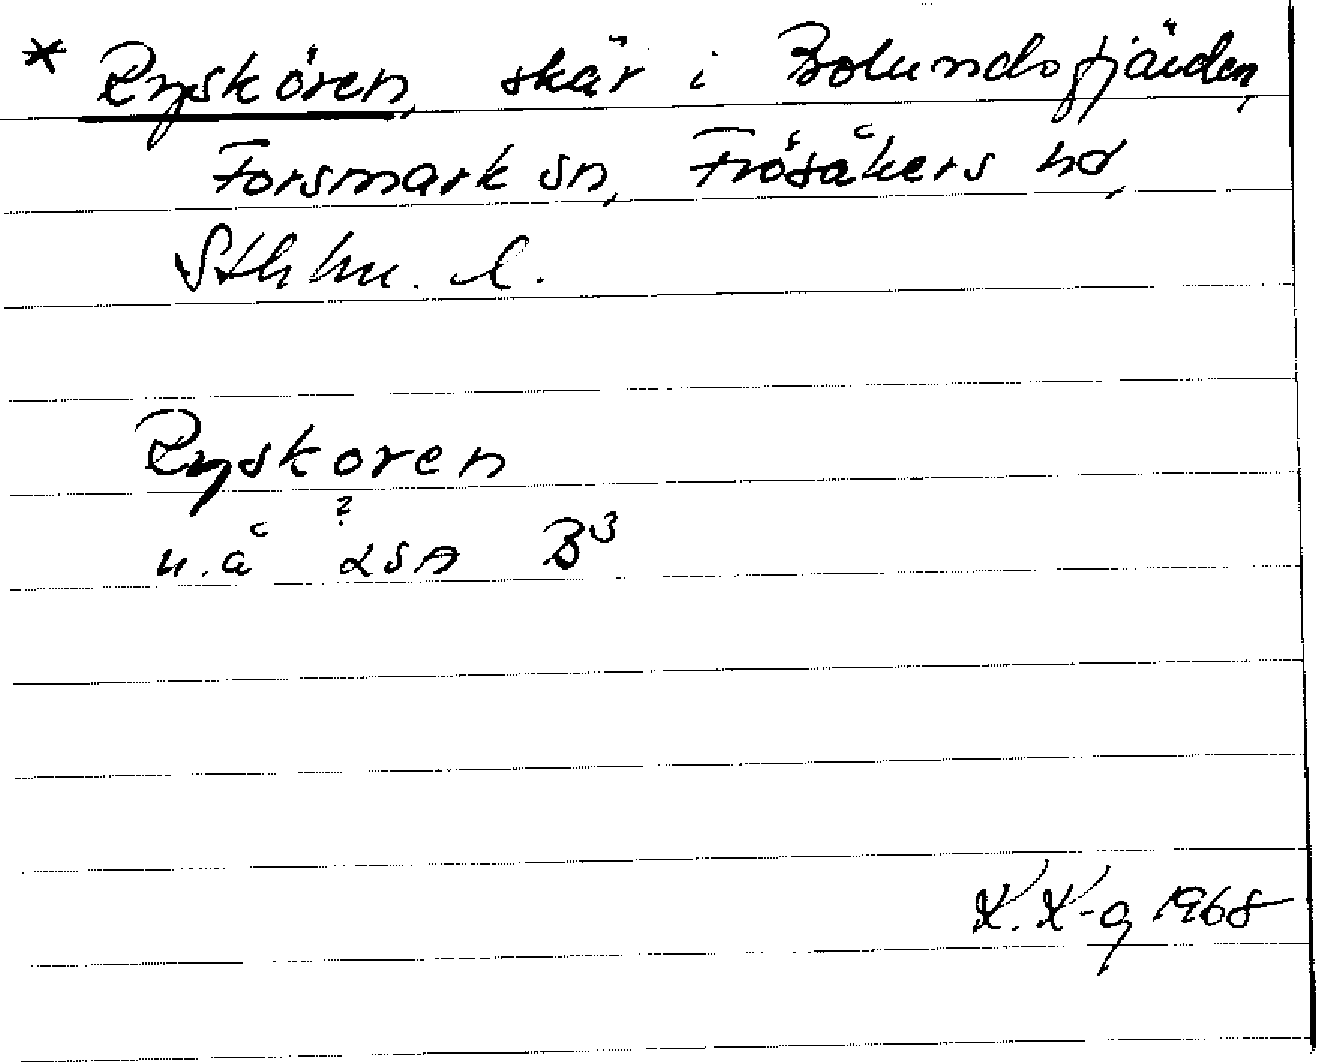 * Ryskören, skär i Bolundsfjärden,
Forsmark sn, Frösåkers hd,
Sthlm. l.
Ryskoren
u.å ? LSA B3
K. K-g 1968